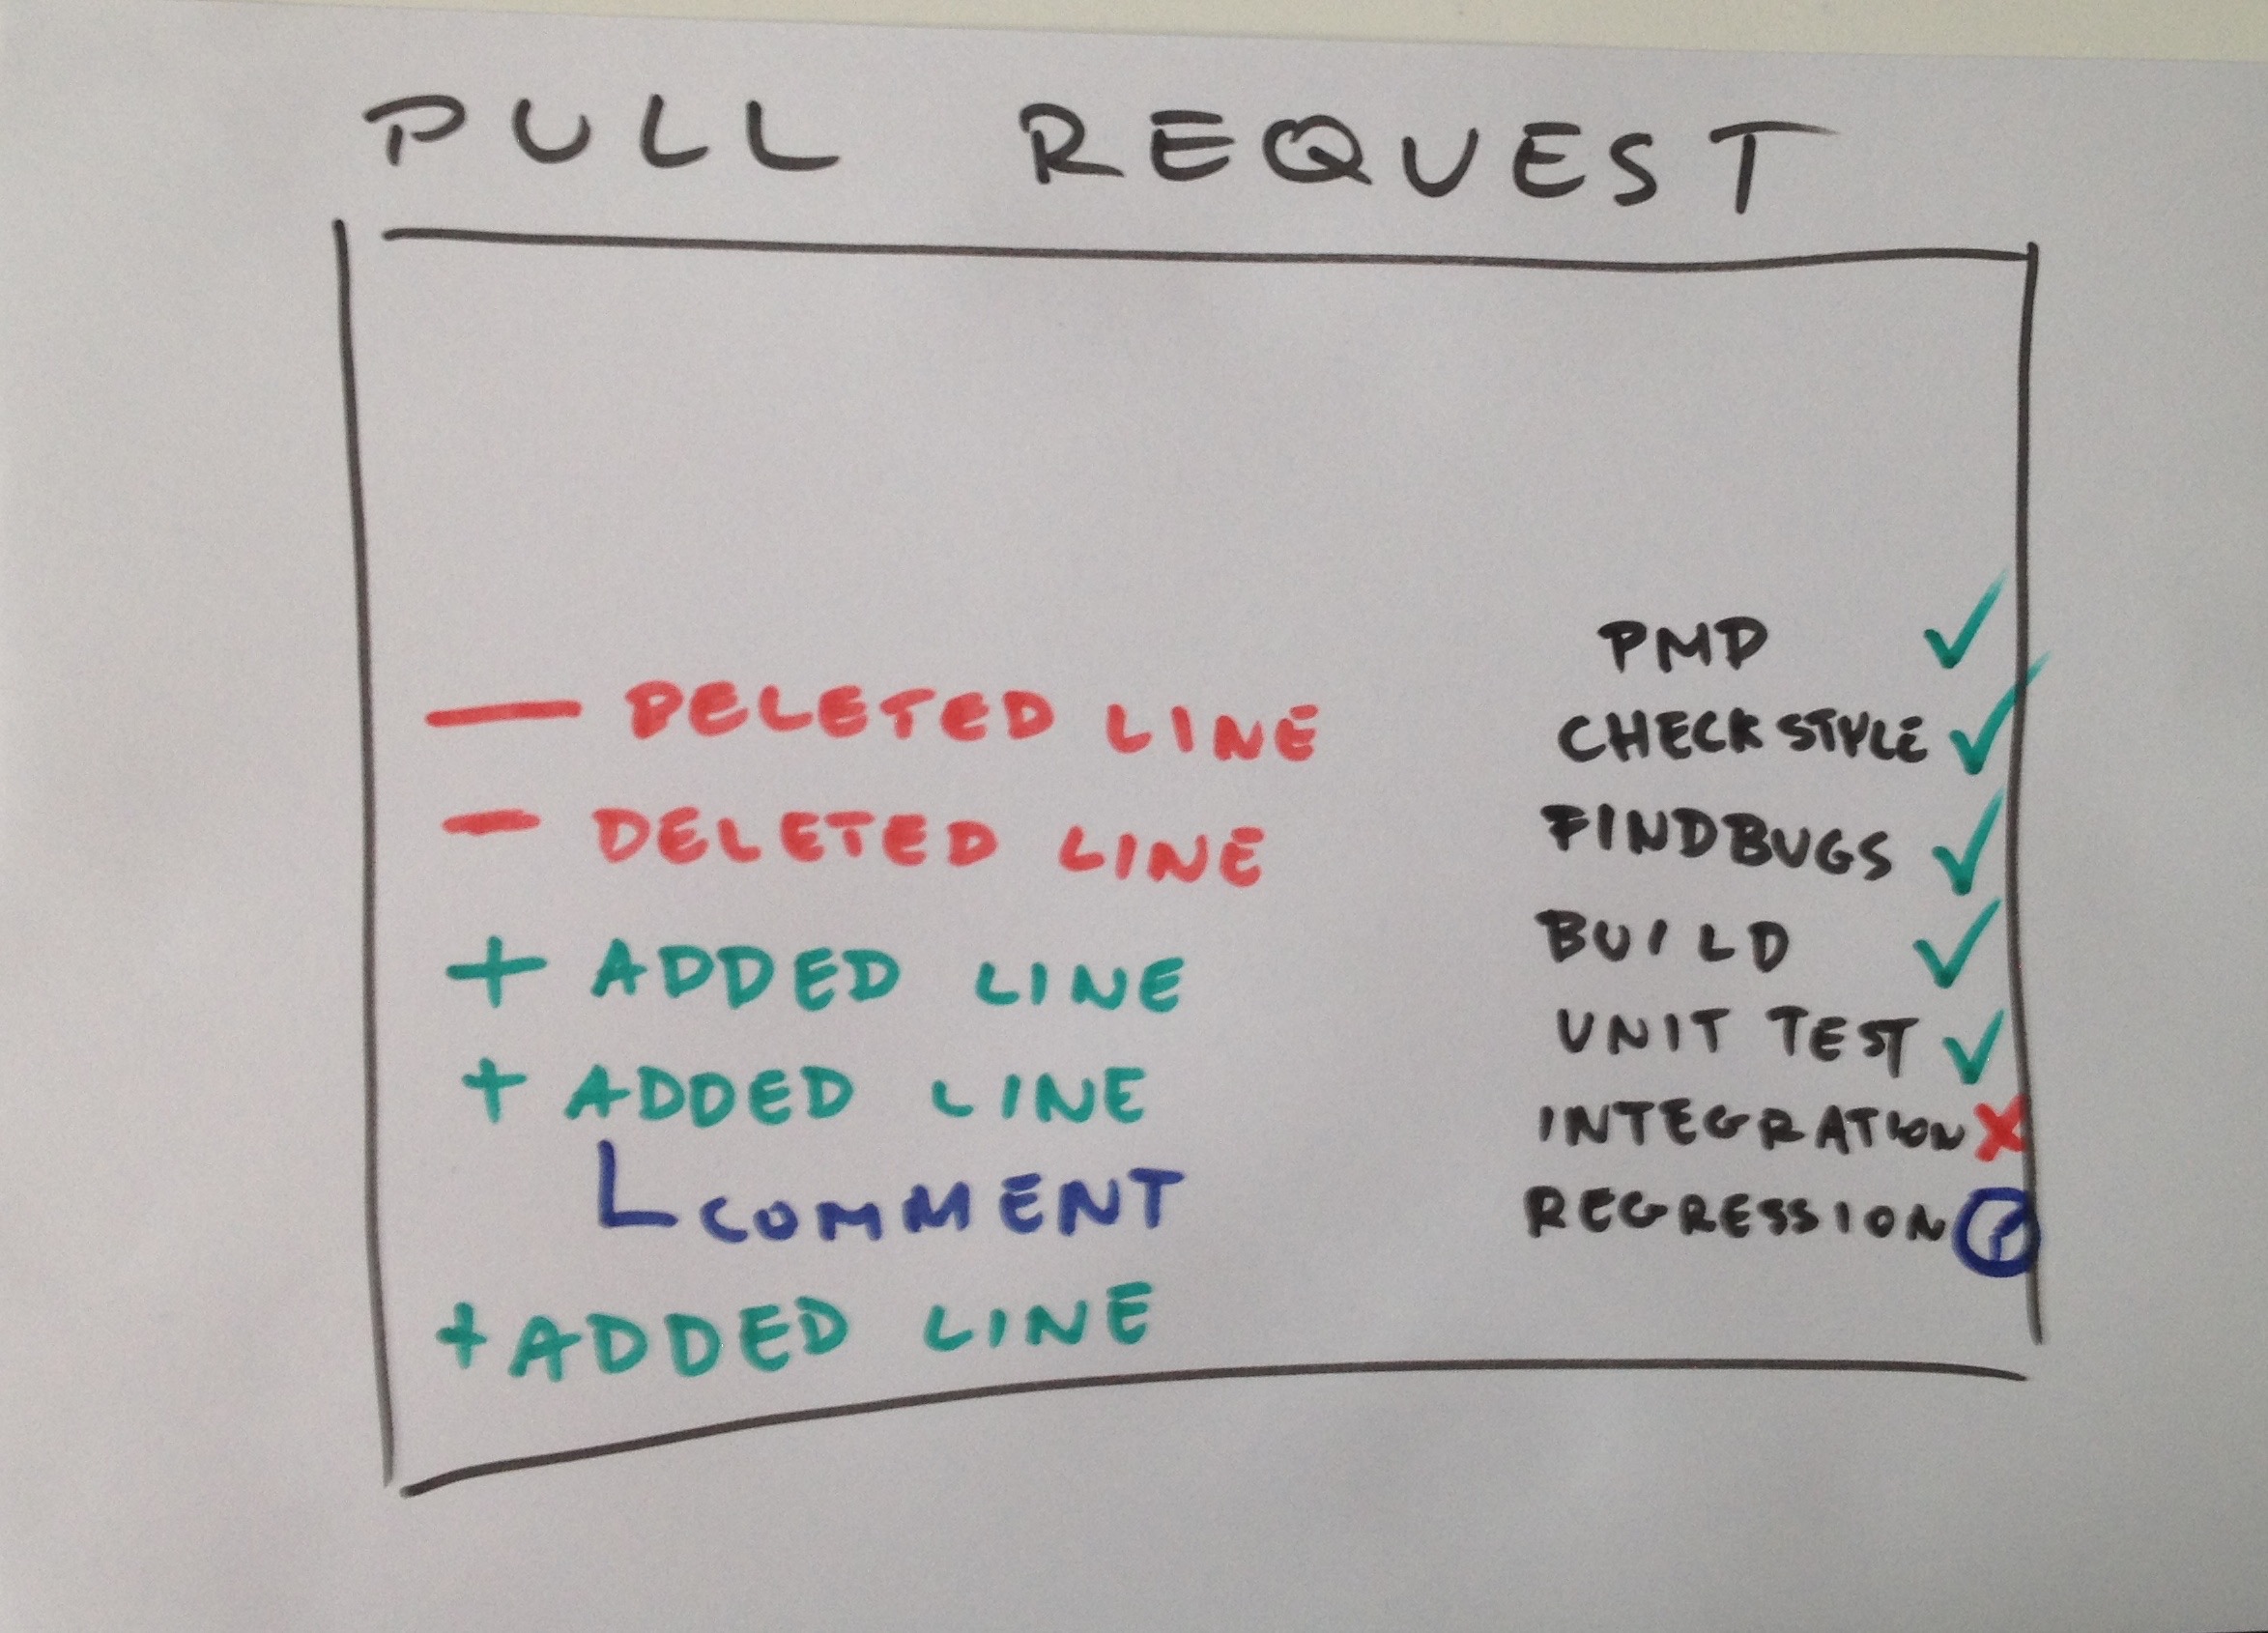 PULL REQUEST
— DELETED LINE
- DELETED LINE
+ ADDED LINE
+ ADDED LINE
COMMENT
+ ADDED LINE
PMD ✓
CHECKSTYLE ✓
FINDBUGS ✓
BUILD ✓
UNIT TEST ✓
INTEGRATION X
REGRESSION